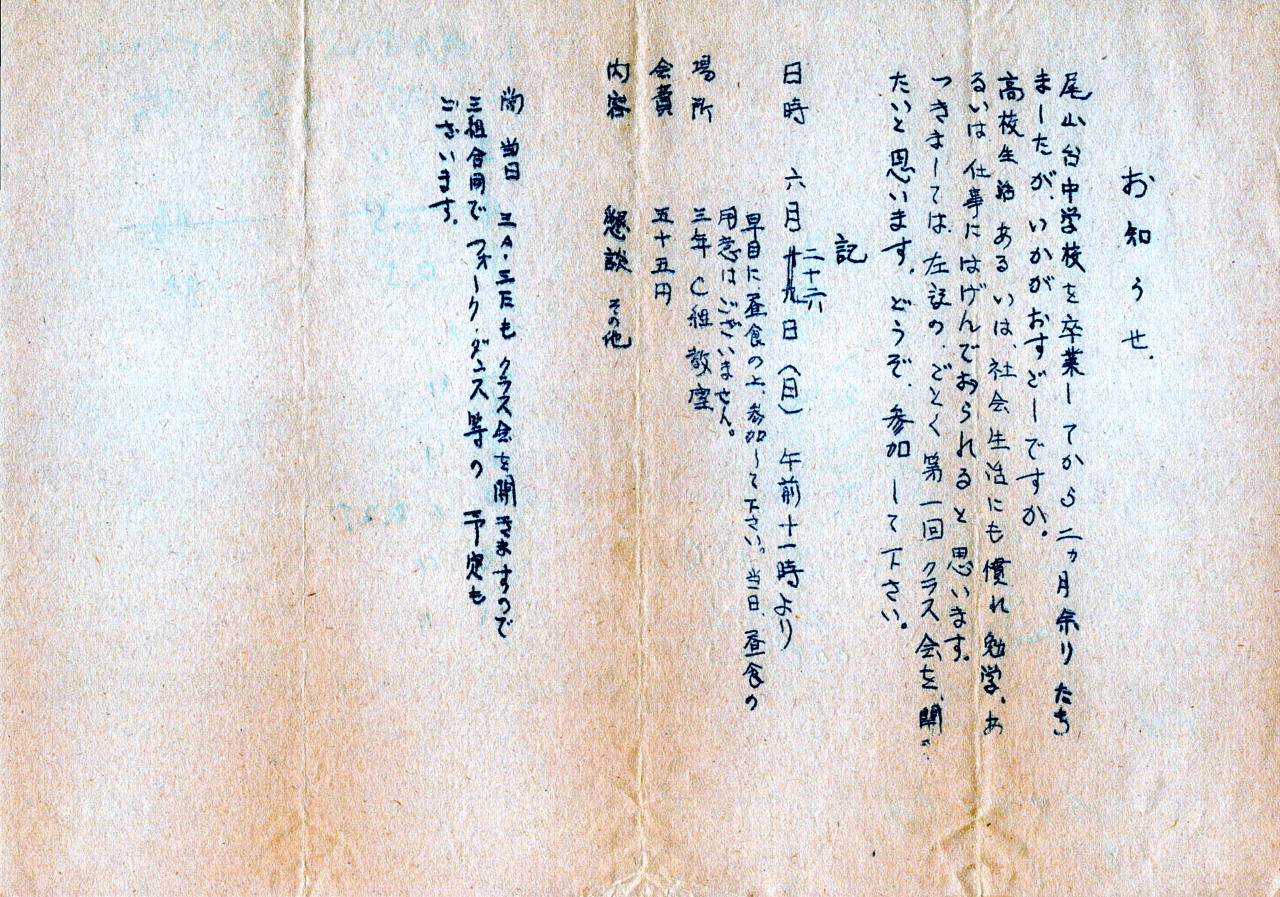 お知らせ.
尾山台中学校を卒業してから二ヵ月余りたち
ましたが、いかがおすごしですか。
高校生活あるいは、社会生活にも慣れ勉学、あ
るいは仕事にはげんでおられると思います。
つきましては、左記の、ごとく第一回クラス会を、開き
たいと思います。どうぞ、参加して下さい。
記
二十六
日時 六月十九日(日) 午前十一時より
早目に昼食の上、参加して下さい。当日、昼食の
用意はございません。
場所 三年C組教室
会費 五十五円
内容 懇談 その他
尚当日 三A・三Eもクラス会を開きますので
三組合同でフォーク・ダンス等の予定も
ございます。